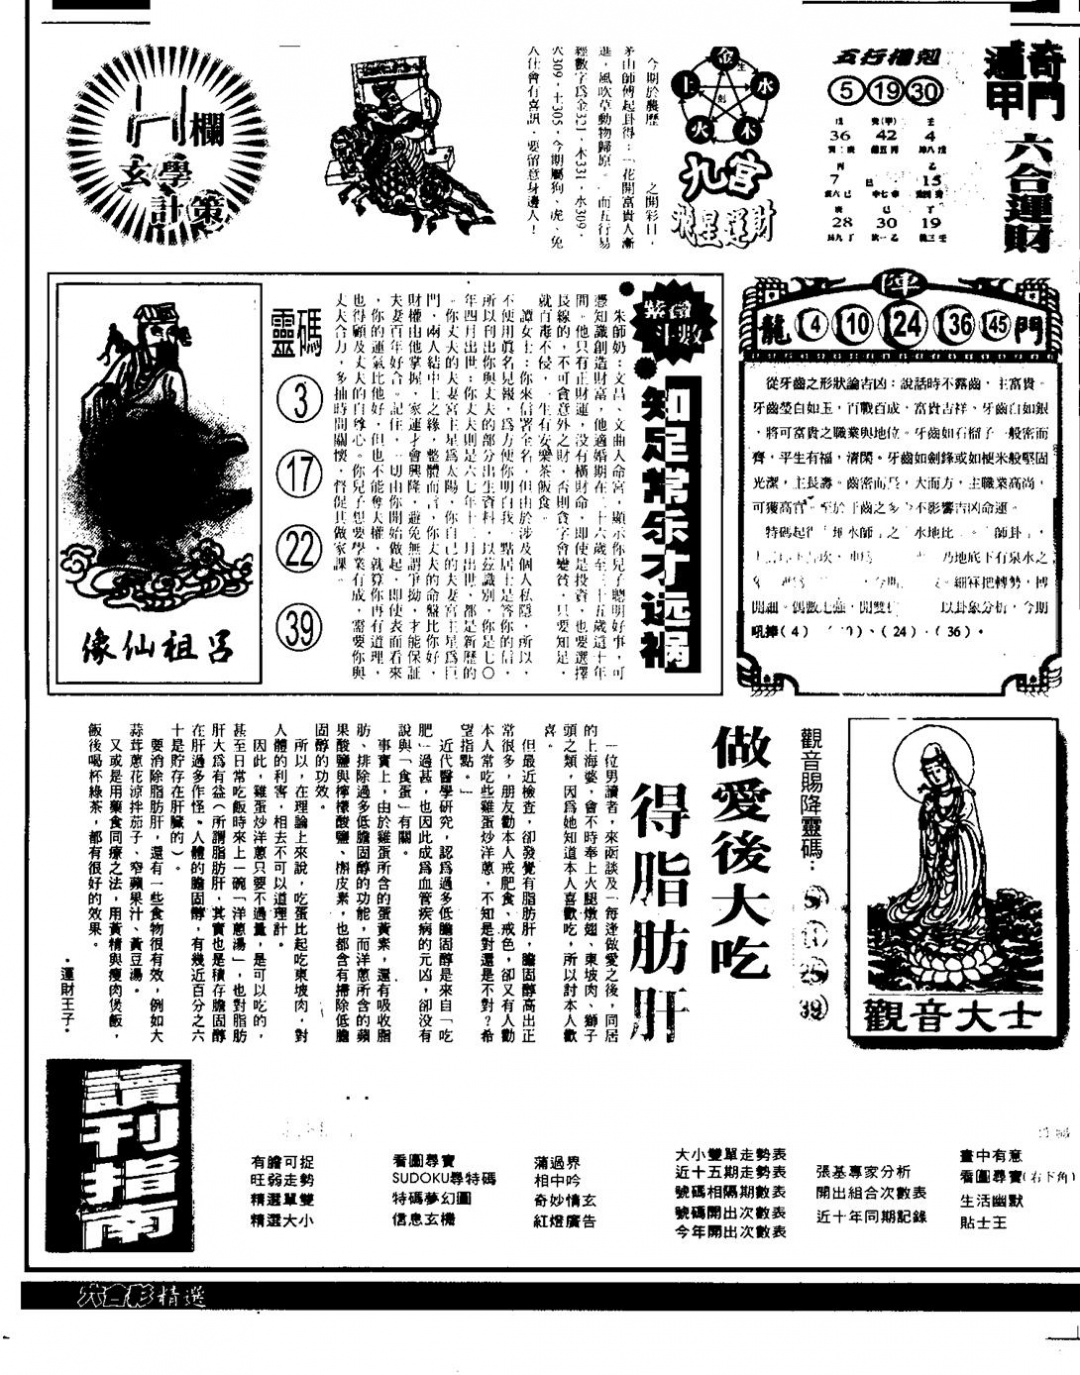 奇門
遁甲
六合運財
五行相剋
5 19 30
36 42 4
7 15
28 30 19
金 生
水
木
火
土
剋
九宮
飛星運財
今期於舊歷 之開彩日，
茅山師傅起卦得：一花開富貴人漸
進，風吹草動物歸原。一而五行易
經數字爲金321，木331，水309，
火309，土305，今期屬狗、虎、兔
人仕會有喜訊，要留意身邊人！
欄
玄學
計策
陣
龍 4 10 24 36 45 門
從牙齒之形狀論吉凶：說話時不露齒，主富貴。
牙齒瑩白如玉，百戰百成，富貴吉祥。牙齒白如銀
，將可富貴之職業與地位。牙齒如石榴子一般密而
齊，平生有福，清閑。牙齒如劍鋒或如梗米般堅固
光潔，主長壽。齒密而長，大而方，主職業高尚，
可獲高官。至於下齒之多少不影響吉凶命運。
乃地底下有泉水之
開細。偶數走強，開雙 以卦象分析，今期
吼捧（4）、（10）、（24）、（36）。
紫微
斗數
知足常乐才远祸
朱師奶：文昌、文曲入命宮，顯示你兒子聰明好事，可
憑知識創造財富，他適婚期在二十六歲至三十五歲這十年
間。他只有正財運，沒有橫財命，即使是投資，也要選擇
長線的，不可貪意外之財，否則貪字會變貧，只要知足，
就百毒不侵，一生有安樂茶飯食。
譚女士：你來信署全名，但由於涉及個人私隱，所以，
不便用眞名見報，爲方便你明白我一點居士是答你的信，
所以刊出你與丈夫的部分出生資料，以茲識別，你是七〇
年四月出世；你丈夫則是六七年十二月出世，都是新歷的
。你丈夫的夫妻宮主星爲太陽，你自己的夫妻宮主星爲巨
門，兩人結中上之緣，整體而言，你丈夫的命盤比你好，
財權由他掌握，家運才會興隆，避免無謂爭拗，才能保証
夫妻百年好合。記住，一切由你開始做起，即使表面看來
，你的運氣比他好，但也不能奪大權，就算你再有道理，
也得顧及丈夫的自尊心。你兒子想要學業有成，需要你與
丈夫合力，多抽時間關懷，督促其做家課。
靈碼
3
17
22
39
呂祖仙像
觀音大士
觀音賜降靈碼：
39
做愛後大吃
得脂肪肝
一位男讀者，來函談及「每逢做愛之後，同居
的上海婆，會不時奉上大腿燉翅、東坡肉、獅子
頭之類，因爲她知道本人喜歡吃，所以討本人歡
喜。
但最近檢查，卻發覺有脂肪肝，膽固醇高出正
常很多，朋友勸本人戒肥食、戒色，卻又有人勸
本人常吃些雞蛋炒洋蔥，不知是對還是不對？希
望指點。」
近代醫學研究，認爲過多低膽固醇是來自「吃
肥」過甚，也因此成爲血管疾病的元凶，卻沒有
說與「食蛋」有關。
事實上，由於雞蛋所含的蛋黃素，還有吸收脂
肪、排除過多低膽固醇的功能，而洋蔥所含的蘋
果酸鹽與檸檬酸鹽、槲皮素，也都含有掃除低膽
固醇的功效。
所以，在理論上來說，吃蛋比起吃東坡肉，對
人體的利害，相去不可以道理計。
因此，雞蛋炒洋蔥只要不過量，是可以吃的，
甚至日常吃飯時來上一碗「洋蔥湯」，也對脂肪
肝大爲有益（所謂脂肪肝，其實也是積存膽固醇
在肝過多作怪。人體的膽固醇，有幾近百分之六
十是貯存在肝臟的）。
要消除脂肪肝，還有一些食物很有效，例如大
蒜茸蔥花涼拌茄子、窄蘋果汁、黃豆湯。
又或是用藥食同療之法，用黃精與瘦肉煲飯，
飯後喝杯綠茶，都有很好的效果。
·運財王子·
讀刊指南
有膽可捉
旺弱走勢
精選單雙
精選大小
看圖尋寶
SUDOKU尋特碼
特碼夢幻圖
信息玄機
蒲過界
相中吟
奇妙情玄
紅燈廣告
大小雙單走勢表
近十五期走勢表
號碼相隔期數表
號碼開出次數表
今年開出次數表
張基專家分析
開出組合次數表
近十年同期記錄
畫中有意
看圖尋寶(右下角)
生活幽默
貼士王
六合彩精選